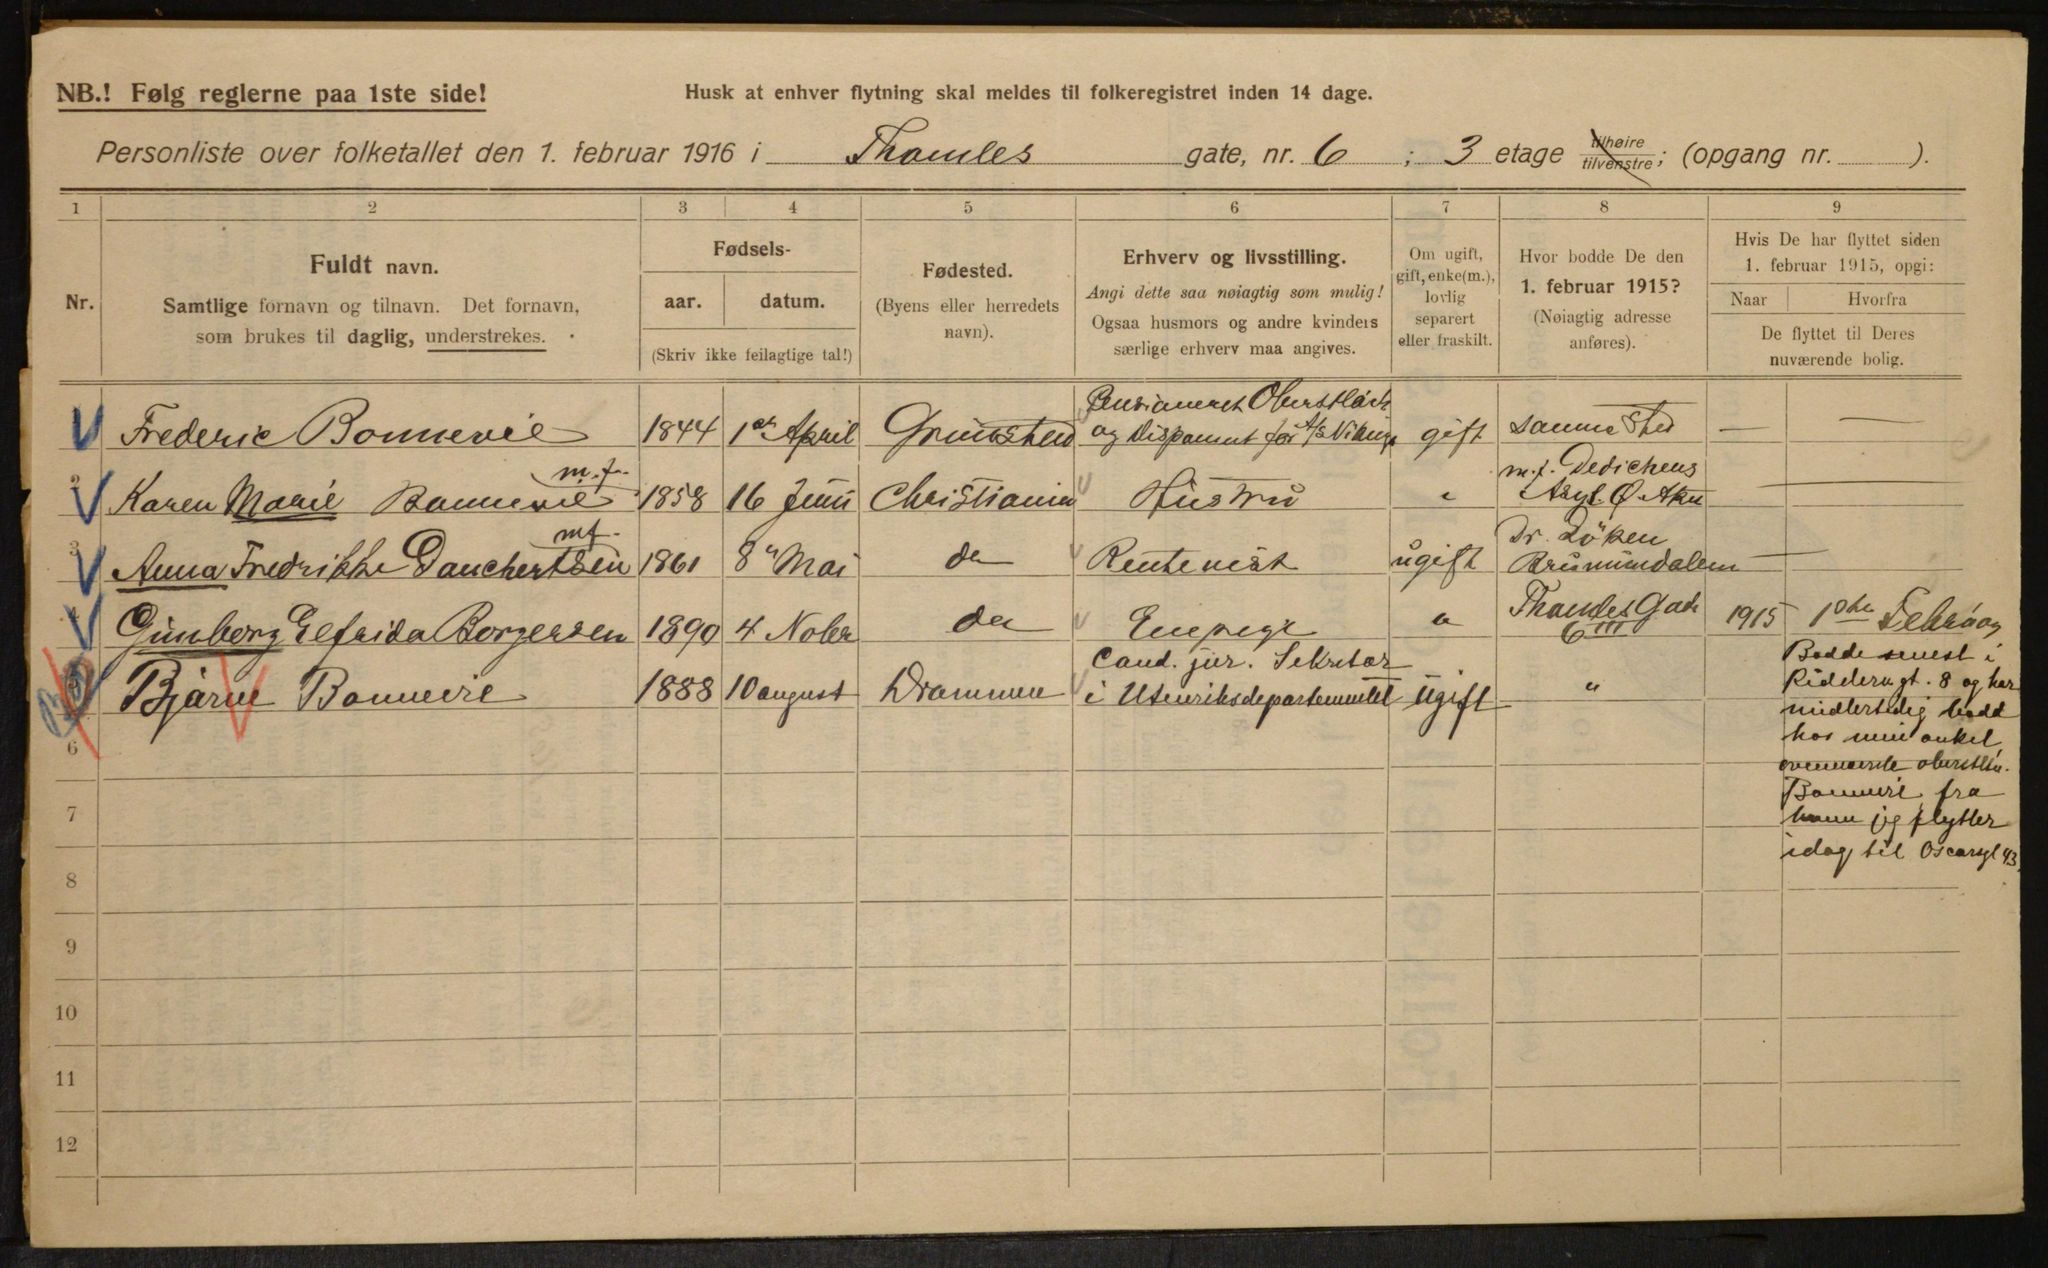 NB.! Følg reglerne paa 1ste side!
Husk at enhver flytning skal meldes til folkeregistret inden 14 dage.
Personliste over folketallet den 1. februar 1916 i Thomles gate, nr. 6 ; 3 etage tilhøire tilvenstre; (opgang nr. ).
1 2 3 4 5 6 7 8 9
Nr.
Fuldt navn.
Samtlige fornavn og tilnavn. Det fornavn,
som brukes til daglig, understrekes.
Fødsels-
aar. datum.
(Skriv ikke feilagtige tal!)
Fødested.
(Byens eller herredets
navn).
Erhverv og livsstilling.
Angi dette saa nøiagtig som mulig!
Ogsaa husmors og andre kvinders
særlige erhverv maa angives.
Om ugift,
gift, enke(m.),
lovlig
separert
eller fraskilt.
Hvor bodde De den
1. februar 1915?
(Nøiagtig adresse
anføres).
Hvis De har flyttet siden
1. februar 1915, opgi:
Naar Hvorfra
De flyttet til Deres
nuværende bolig.
1 Frederic Bonnevie 1844 1 April Grimstad Pensioneret Oberstløit og Disponent for A/S gift samme sted — —
2 Karen Marie Bonnevie m.f. 1858 16 Juni Christiania Hustru " m.f. Dedichens Asyl. Ø. Aker —
3 Anna Fredrikke Danchertsen mf. 1861 8 Mai do Rentenist ugift Dr. Løken Brumunddalen —
4 Gunborg Elfrida Borgersen 1890 4 Nobr do Enepige " Thomles Gade 6 III 1915 Februar
5 Bjarne Bonnevie 1888 10 august Drammen Cand. jur. Sekretær i Utenriksdepartementet Ugift "
Bodde senest i
Ridderv gt. 8 og har
midlertidig bodd
hos min onkel,
ovennævnte oberstltn.
Bonnevie, fra
hvem jeg flytter
idag til Oscarsgt 43
6
7
8
9
10
11
12